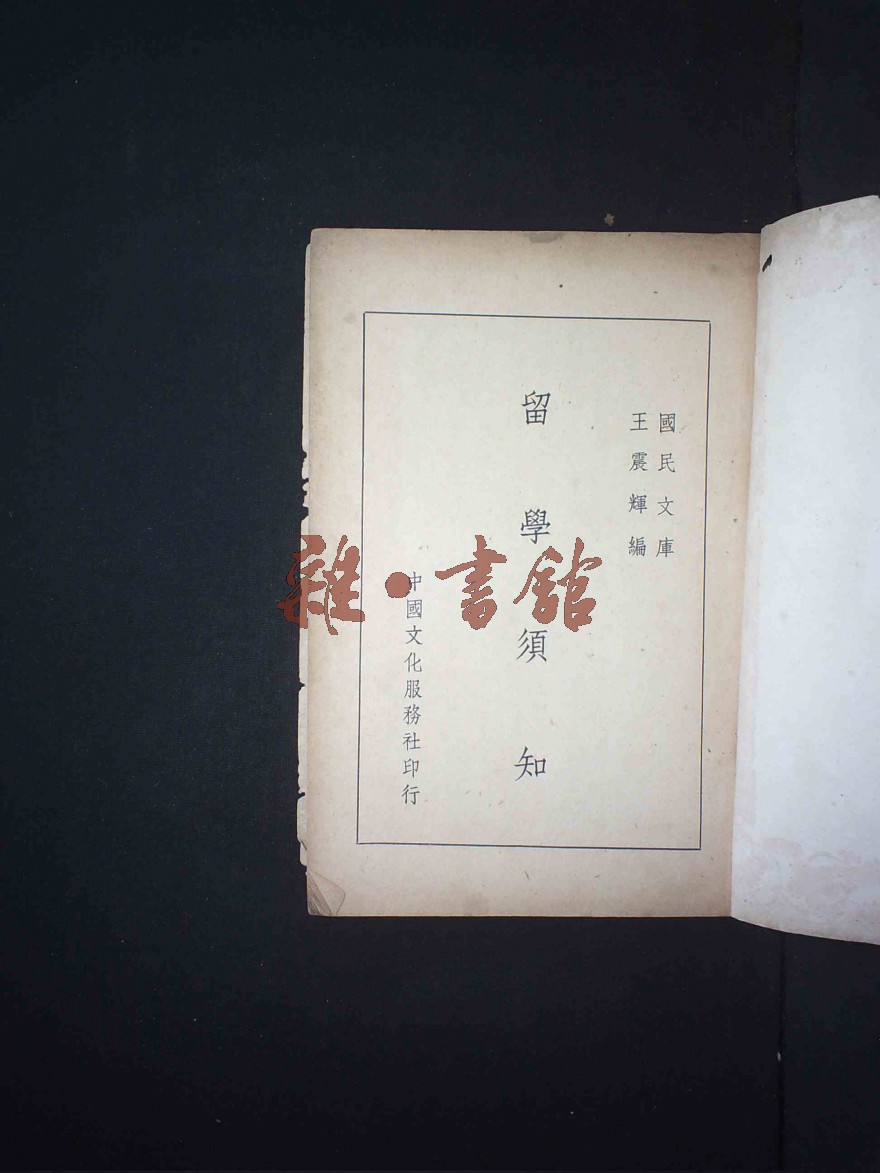 國民文庫
王震輝編
留學須知
中國文化服務社印行
雜•書館